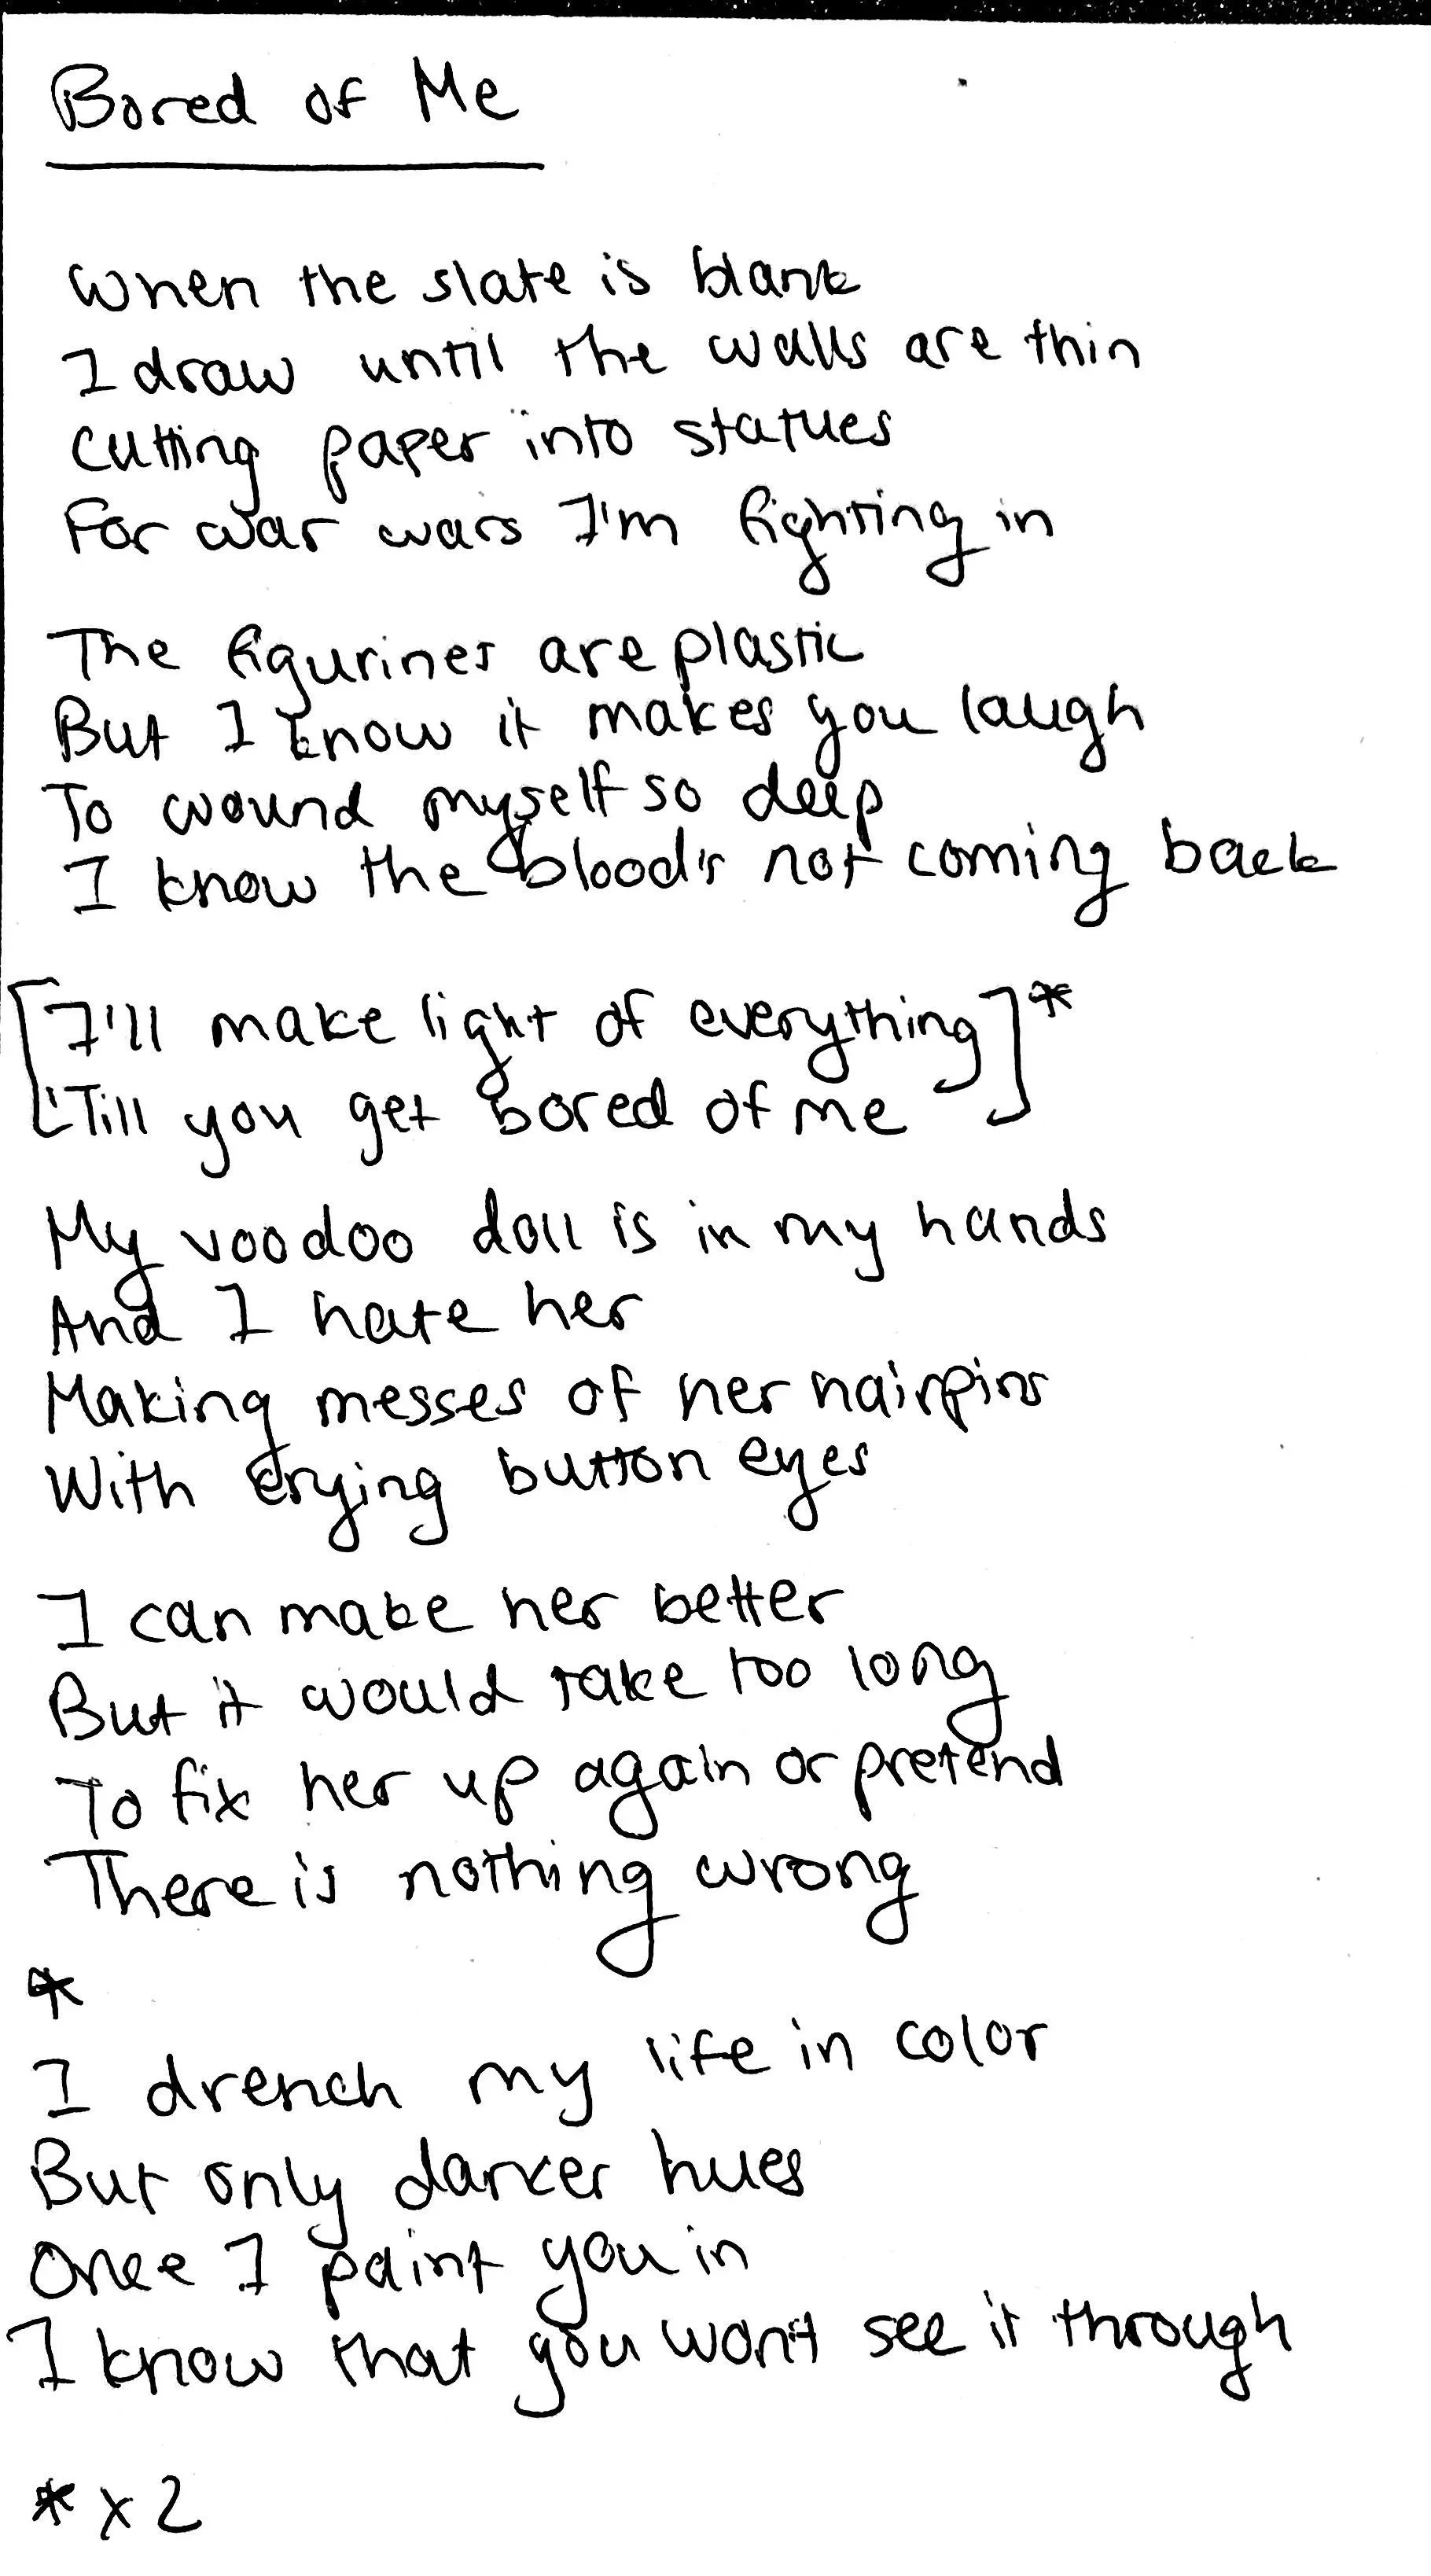 Bored of Me
When the slate is blank
I draw until the walls are thin
Cutting paper into statues
For war wars I'm fighting in
The figurines are plastic
But I know it makes you laugh
To wound myself so deep
I know the blood's not coming back
[I'll make light of everything]*
'Till you get bored of me
My voodoo doll is in my hands
And I hate her
Making messes of her hairpins
With crying button eyes
I can make her better
But it would take too long
To fix her up again or pretend
There is nothing wrong
*
I drench my life in color
But only darker hues
Once I paint you in
I know that you won't see it through
* x 2